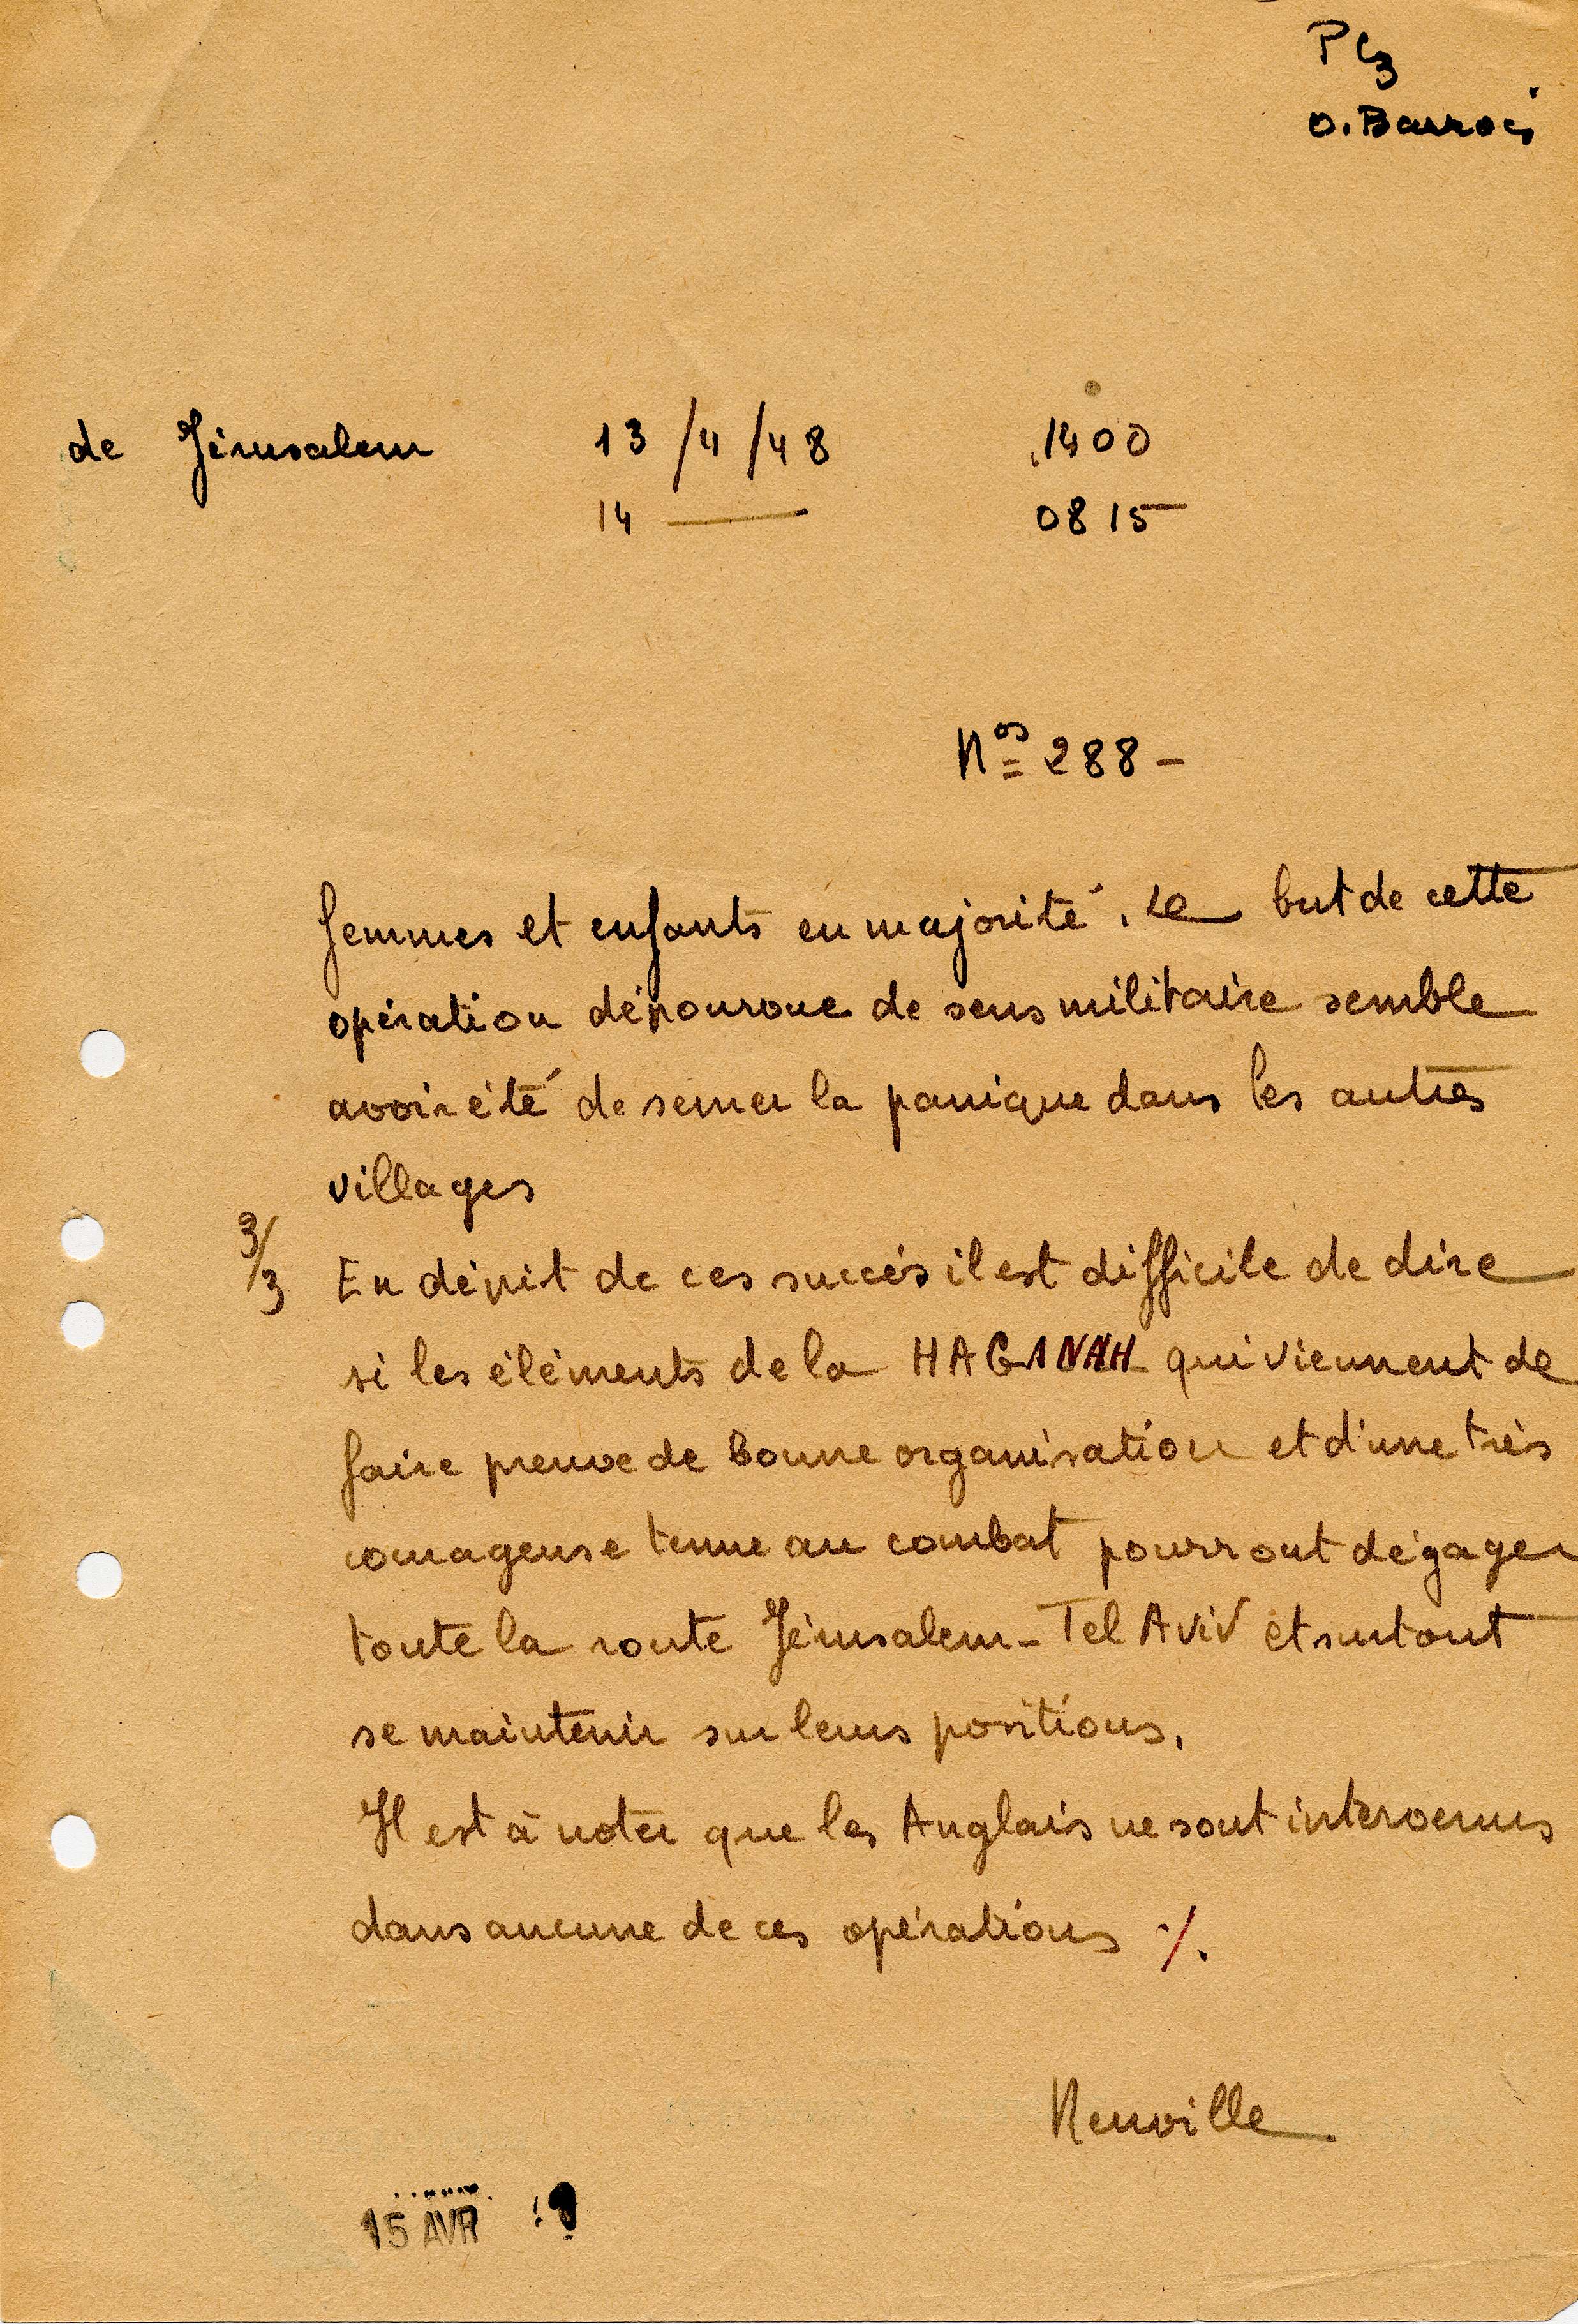 O. Barrois
de Jérusalem 13/4/48 1400
14 — 0815
Nos 288 -
femmes et enfants en majorité. Le but de cette
opération dépourvue de sens militaire semble
avoir été de semer la panique dans les autres
villages
3/3 En dépit de ces succès il est difficile de dire
si les éléments de la HAGANAH qui viennent de
faire preuve de bonne organisation et d'une très
courageuse tenue au combat pourront dégager
toute la route Jérusalem - Tel AViV et surtout
se maintenir sur leurs positions.
Il est à noter que les Anglais ne sont intervenus
dans aucune de ces opérations ./.
Neuville
15 AVR